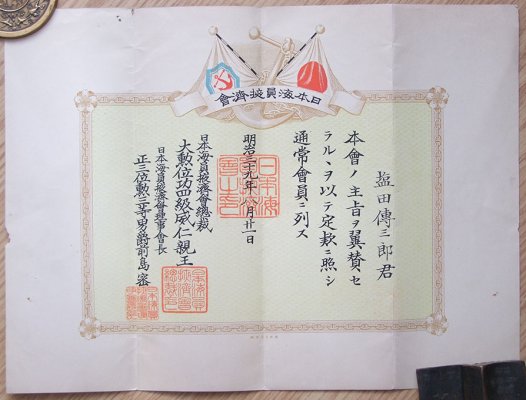 日本海員掖濟會
塩田傳三郎君
本會ノ主旨ヲ翼賛セ
ラルヽヲ以テ定款ニ照シ
通常會員ニ列ス
明治三十九年八月廿一日
日本海員掖濟會總裁
大勲位功四級威仁親王
日本海員掖濟會理事會長
正三位勲三等男爵前島密